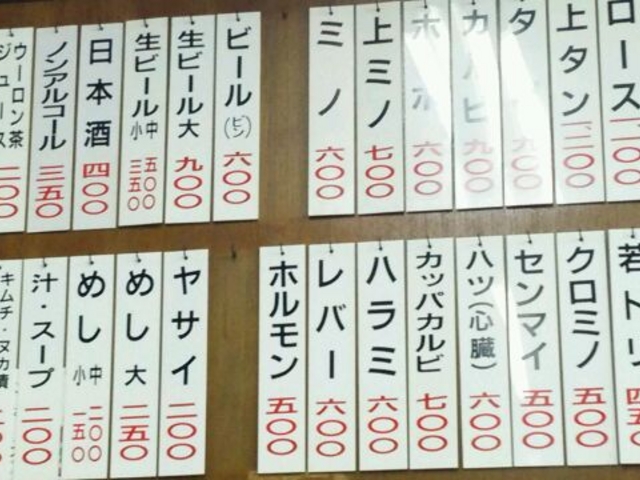 ロース 一二〇〇
上タン 一二〇〇
カルビ 九〇〇
ホホ 六〇〇
上ミノ 七〇〇
ミノ 六〇〇
ビール(ビン) 六〇〇
生ビール大 九〇〇
生ビール 中 五〇〇
小 三五〇
日本酒 四〇〇
ノンアルコール 三五〇
ウーロン茶
ジュース 二〇〇
若トリ
クロミノ 五〇〇
センマイ 五〇〇
ハツ(心臓) 六〇〇
カッパカルビ 七〇〇
ハラミ 六〇〇
レバー 六〇〇
ホルモン 五〇〇
ヤサイ 二〇〇
めし大 二五〇
めし 中 二〇〇
小 一五〇
汁・スープ 二〇〇
キムチ・ヌカ漬